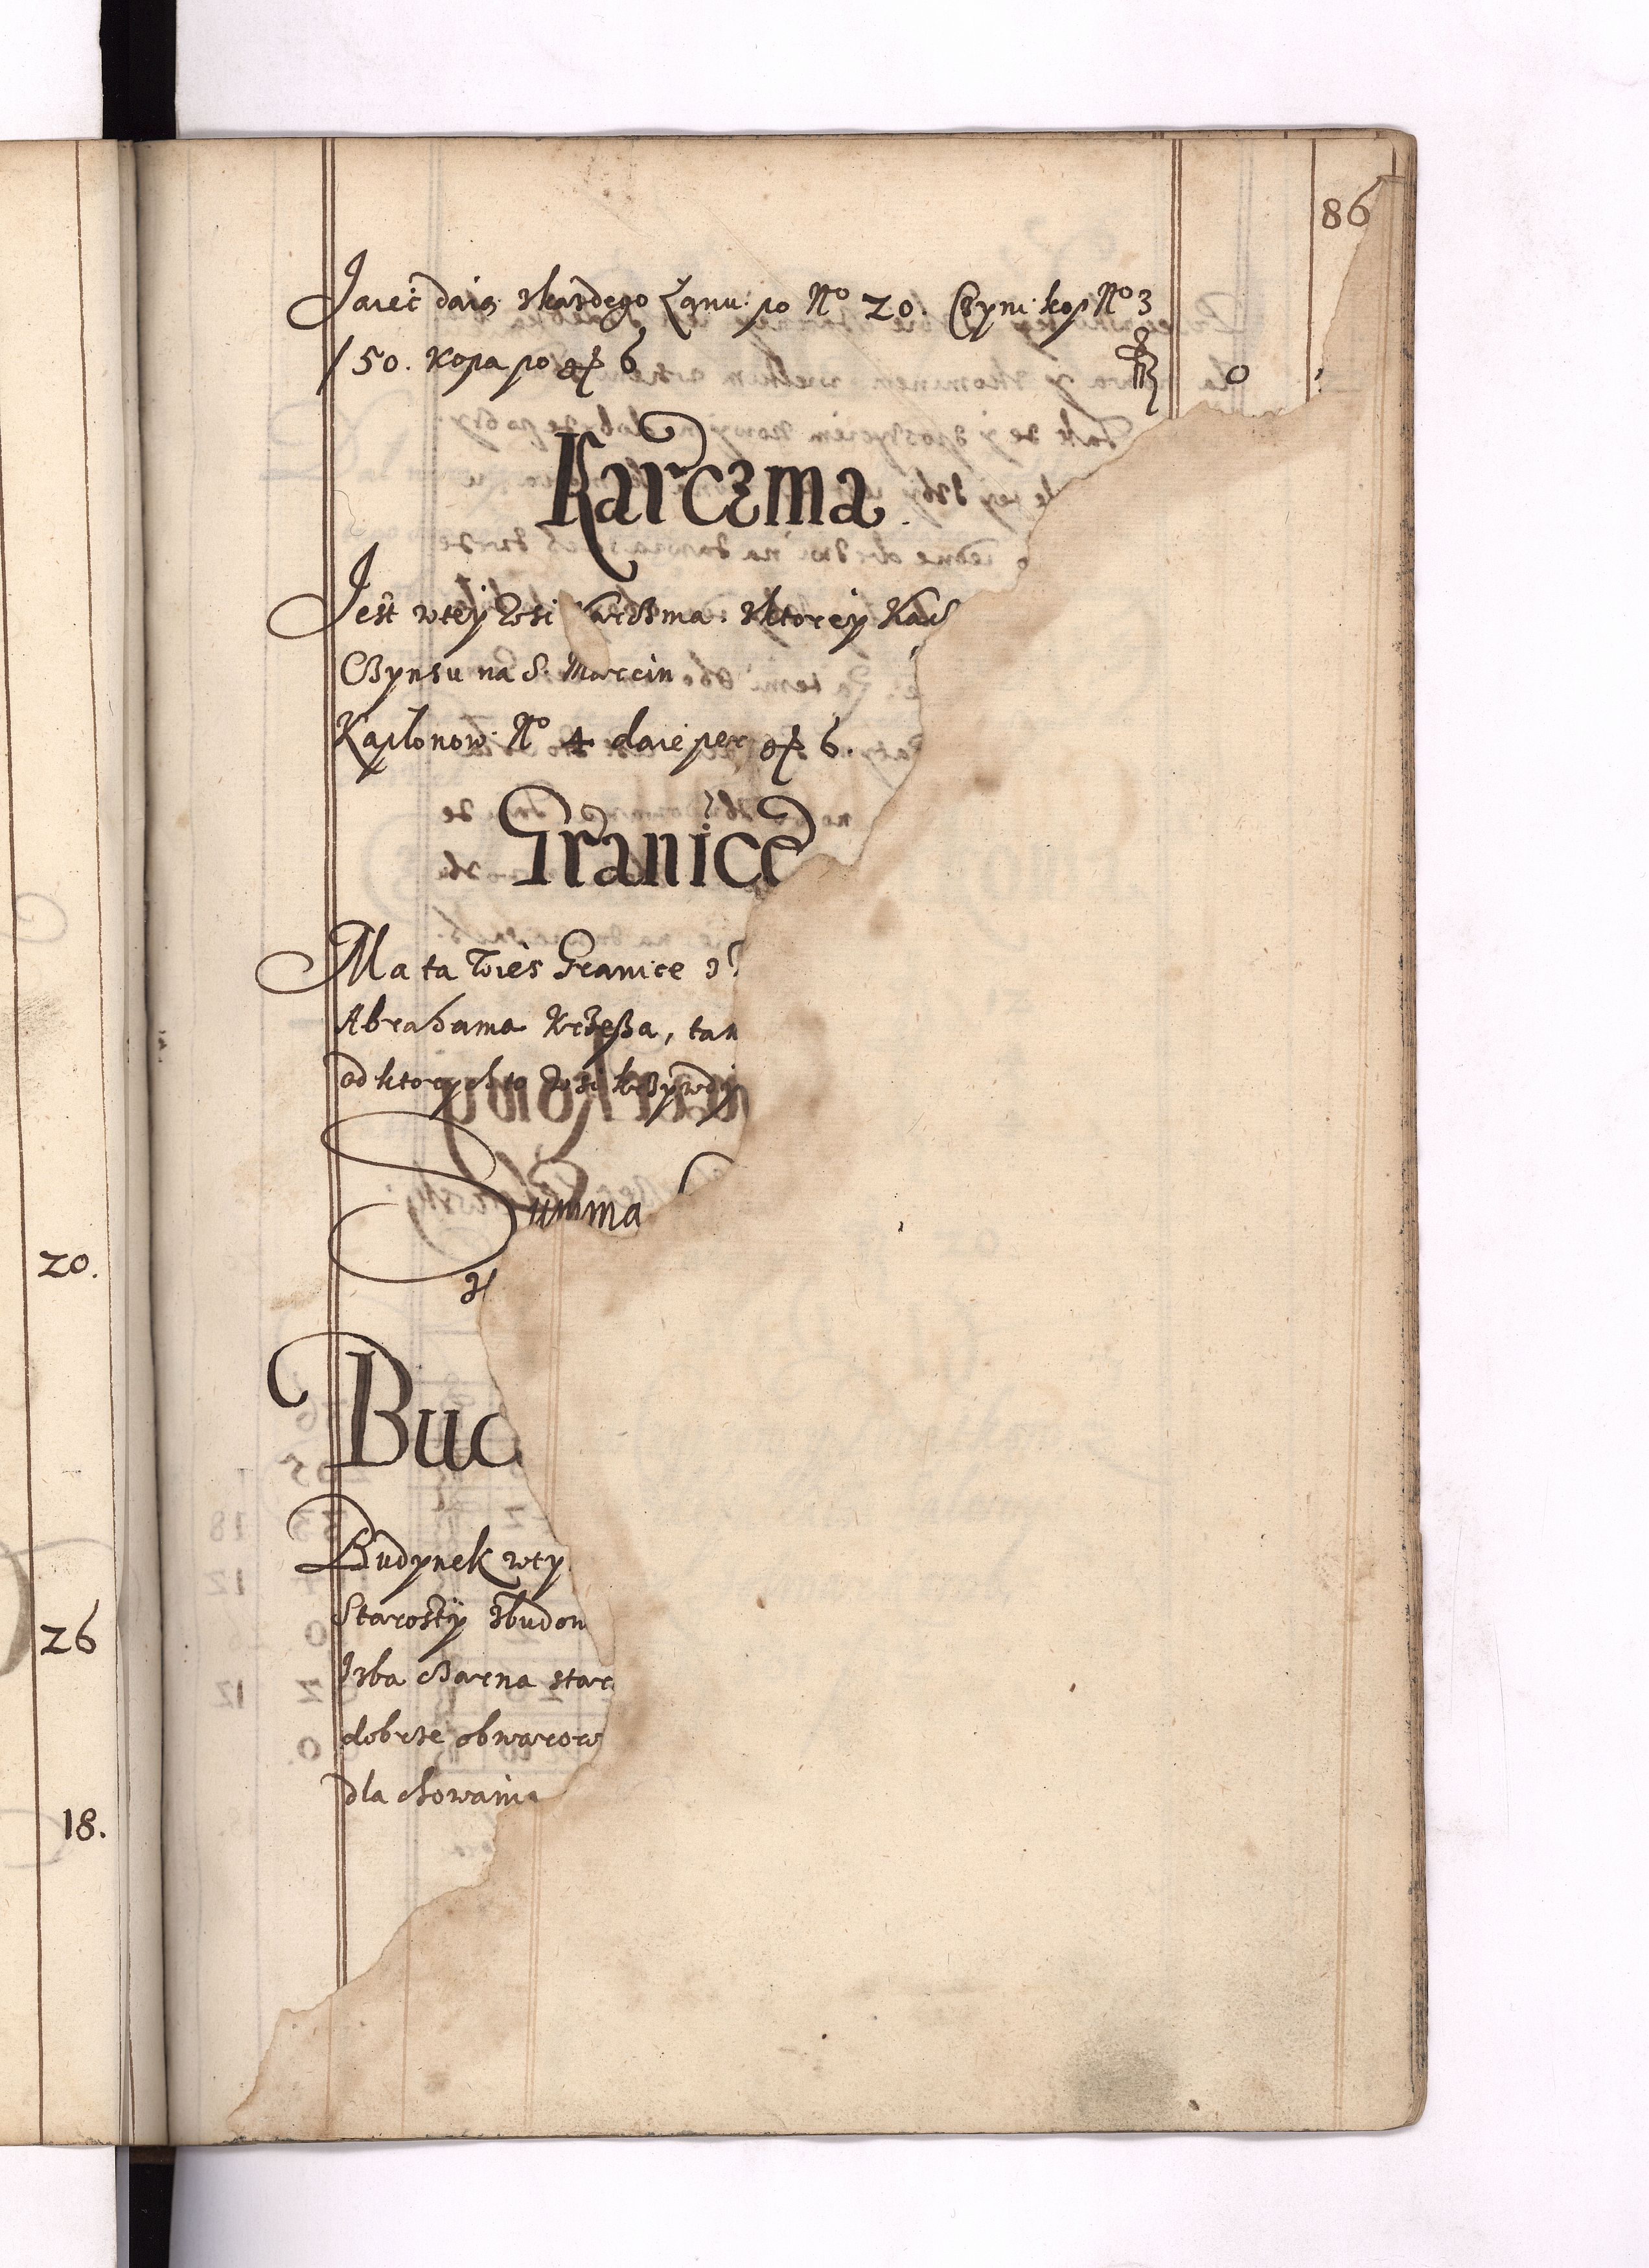 86
Jaiec daią zkazdego Łanu po No 20. Czyni kop No 3
/50. Kopa po gr 6 0
Karczma
Jest wtey Wsi Karczma, zktorey Kar
Czynszu na S. Marcin
Kapłonow No 4 daie per gr 6.
Granice
Ma ta Wieś Granice
Abrahama Krzesza, tam
od ktorych to Wsi krzywdy
Summa
Bud
Budynek wty
Starosty zbudow
Izba Czarna star
dobrze obwarow
dla chowania
20.
26
18.